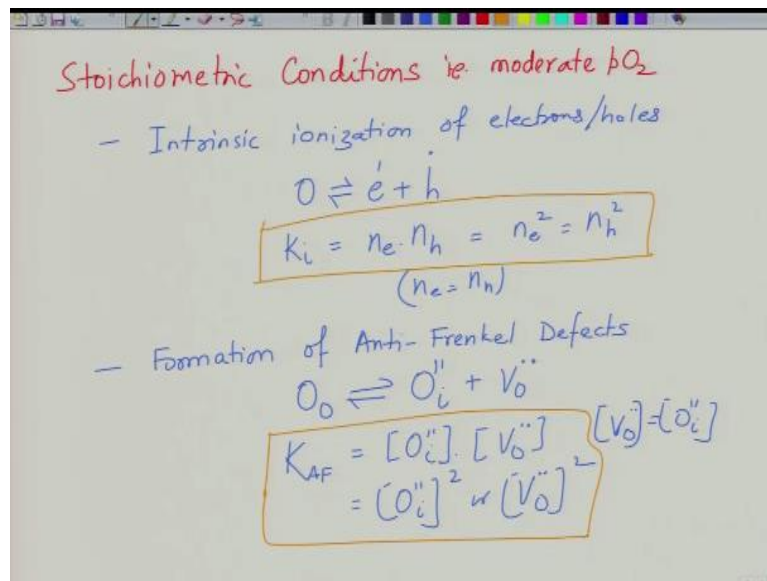 Stoichiometric Conditions ie. moderate pO₂
- Intrinsic ionization of electrons/holes
O ⇌ e′ + h˙
Kᵢ = nₑ. nₕ = nₑ² = nₕ²
(nₑ = nₕ)
- Formation of Anti-Frenkel Defects
O₀ ⇌ Oᵢ″ + V₀¨
K_AF = [Oᵢ″] . [V₀¨] [V₀¨] = [Oᵢ″]
= [Oᵢ″]² or [V₀¨]²